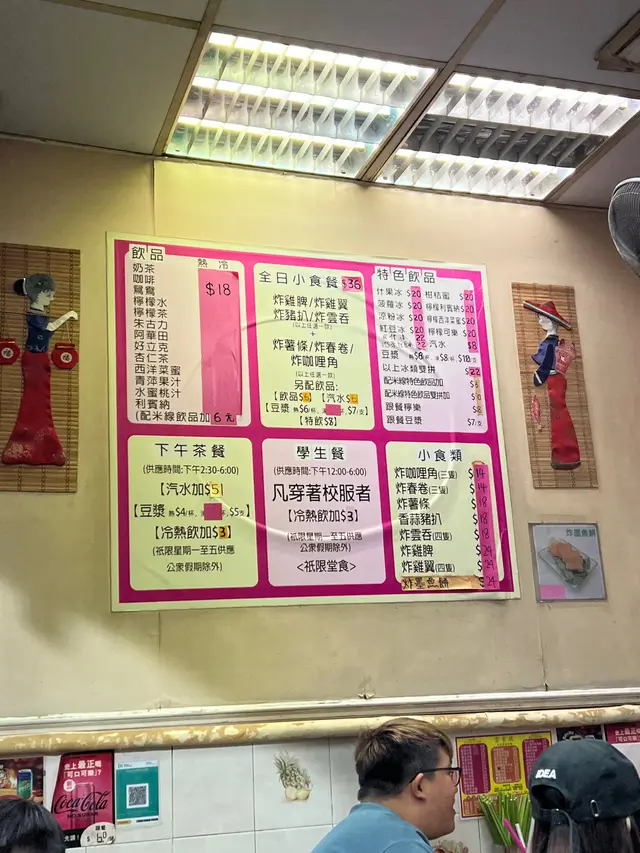 飲品
熱 冷
奶茶
咖啡
鴛鴦
檸檬水
檸檬茶
朱古力
阿華田
好立克
杏仁茶
西洋菜蜜
青萍果汁
水蜜桃汁
利賓納
$18
(配米線飲品加6元)
全日小食餐 $36
炸雞脾/炸雞翼
炸豬扒/炸雲吞
(以上任選一款)
+
炸薯條/炸春卷/
炸咖喱角
(以上任選一款)
另配飲品:
【飲品$6】【汽水$6】
【豆漿 熱$6/杯, 凍, $7/支】
【特飲$8】
特色飲品
什果冰 $20 柑桔蜜 $20
菠蘿冰 $20 檸檬利賓納 $20
涼粉冰 $20 檸檬西洋菜蜜 $20
紅豆冰 $20 檸檬可樂 $20
汽水 $8
豆漿 熱$8 凍$8 $18支
以上冰類雙拼 $22
配米線特色飲品加
配米線特色飲品雙拼加
跟餐檸樂
跟餐豆漿 $7/支
下午茶餐
(供應時間:下午2:30-6:00)
【汽水加$5】
【豆漿 熱$4/杯, 凍, $5/支】
【冷熱飲加$3】
(祇限星期一至五供應
公眾假期除外)
學生餐
(供應時間:下午12:00-6:00)
凡穿著校服者
【冷熱飲加$3】
(祇限星期一至五供應
公眾假期除外)
<祇限堂食>
小食類
炸咖喱角(三隻) $14
炸春卷(三隻) $14
炸薯條 $18
香蒜豬扒 $18
炸雲吞(四隻) $18
炸雞脾 $24
炸雞翼(四隻) $24
炸墨魚餅 $24
炸墨魚餅
史上最正嘅
「可口可樂」?
Coca-Cola
NO SUGAR
IDEA